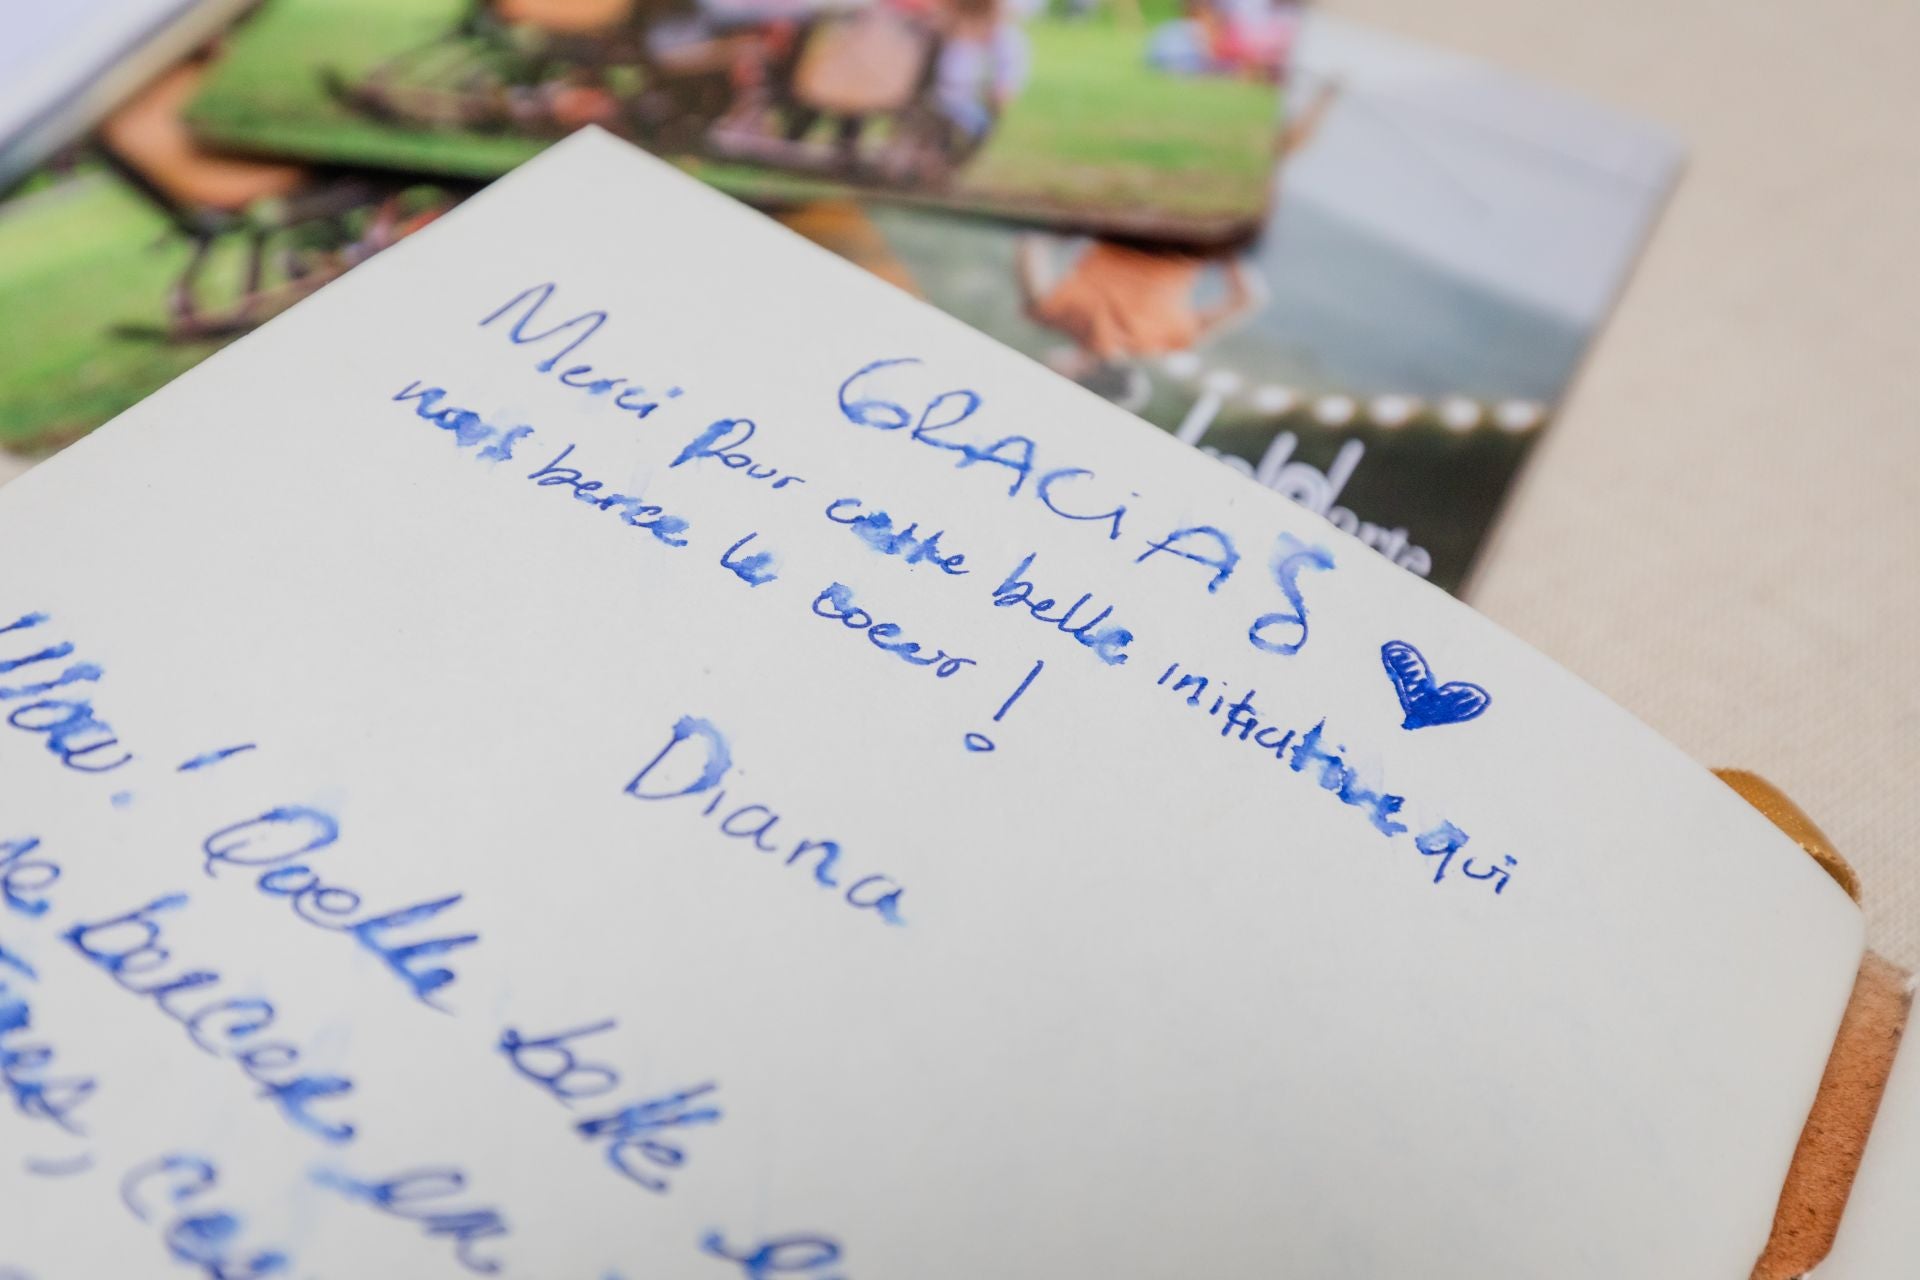 GRACiAS
Merci pour cette belle initiative qui
nous berce le coeur !
Diana
Wow ! Quelle belle
bercer en